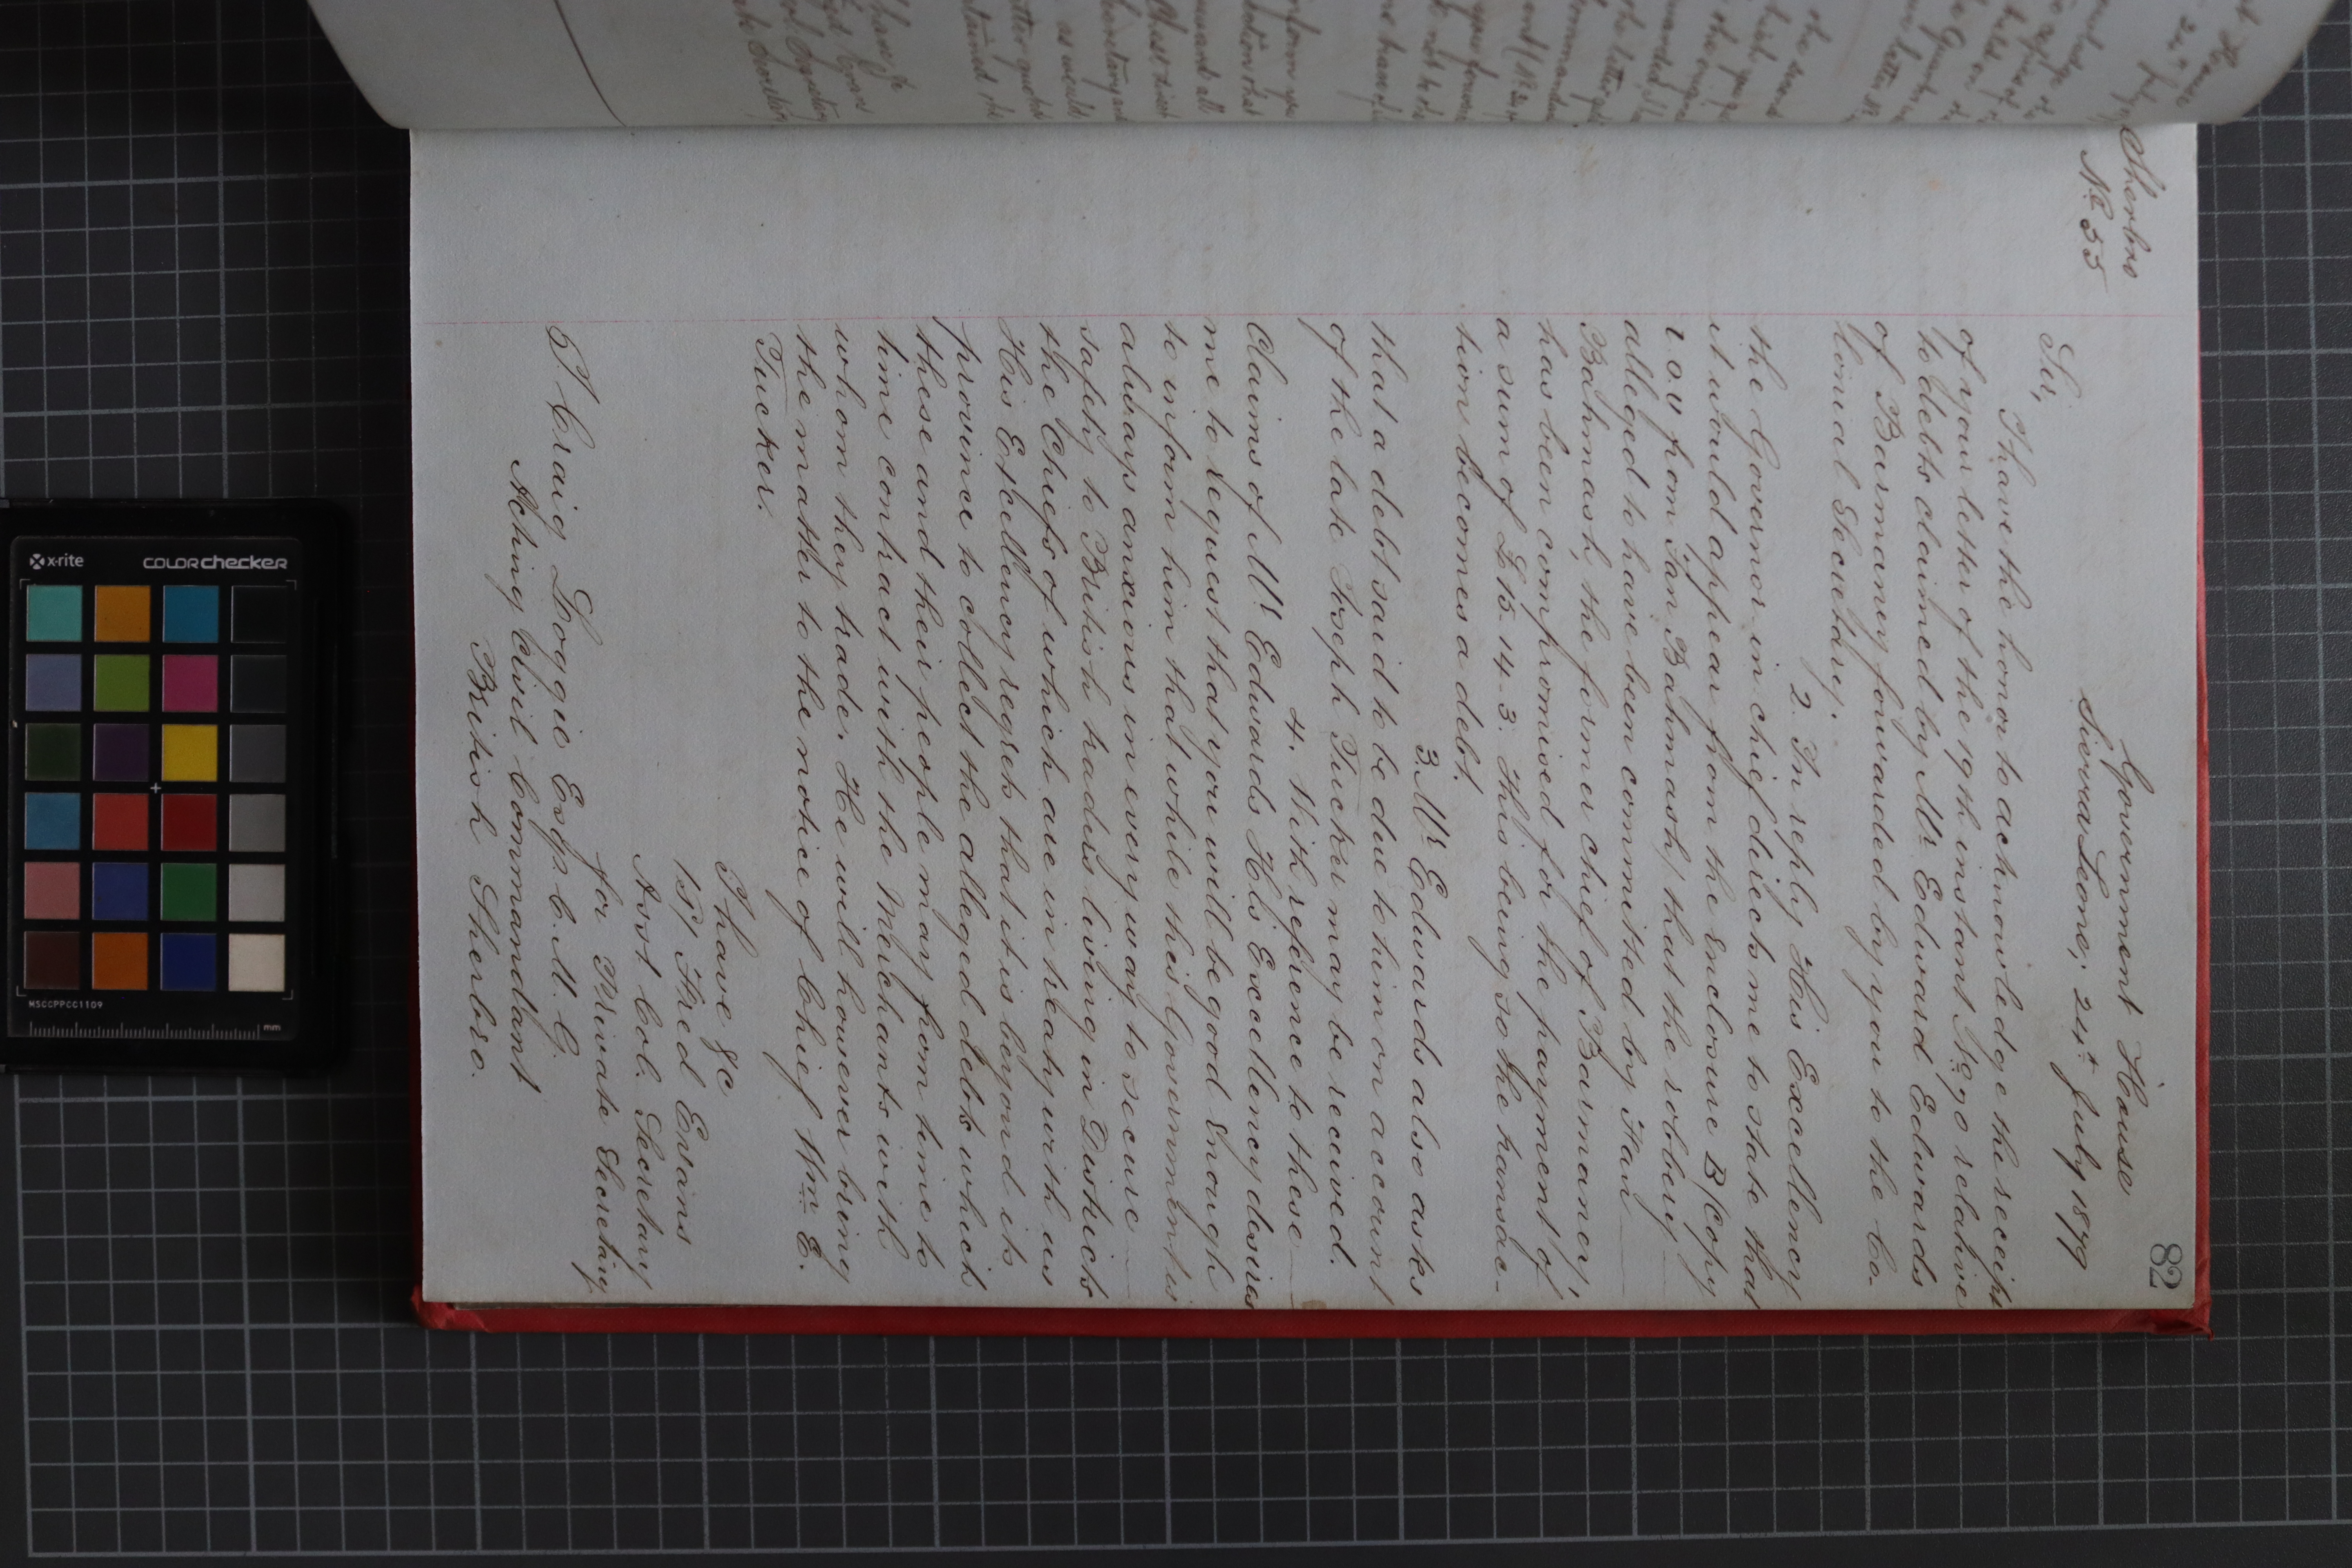 82
Sherbro
No 55
Government House
Sierra Leone, 24th July 1879
Sir,
I have the honor to acknowledge the receipt
of your letter of the 19th instant No 90 relative
to debts claimed by Mr Edward Edwards
of Barmaney forwarded by you to the Co-
lonial Secretary.
2. In reply His Excellency
the Governor in chief directs me to state that
it would appear from the enclosure B/Copy
I.O.U from Fan Bahmash/ that the robbery
alleged to have been committed by Fan
Bahmash, the former chief of Barmaney!
has been compromised for the payment of
a sum of £15. 14. 3. This being so the transac-
tion becomes a debt.
3. Mr Edwards also asks
that a debt said to be due to him on account
of the late Joseph Tucker may be received.
4. With reference to these
Claims of Mr Edwards His Excellency desires
me to request that you will be good enough
to inform him that while this Government is
always anxious in every way to secure
safety to British traders living in Districts
the Chiefs of which are in treaty with us
His Excellency regrets that it is beyond its
province to collect the alleged debts which
these and their people may from time to
time contract with the Merchants with
whom they trade. He will however bring
the matter to the notice of Chief Wm E.
Tucker.
I have &c
Fred Evans
Asst Col. Secretary
for Private Secretary
T. Craig Loggie Esqr. C. M. G.
Acting Civil Commandant
British Sherbro.
x-rite
colorchecker
MSCCPPCC1109
mm